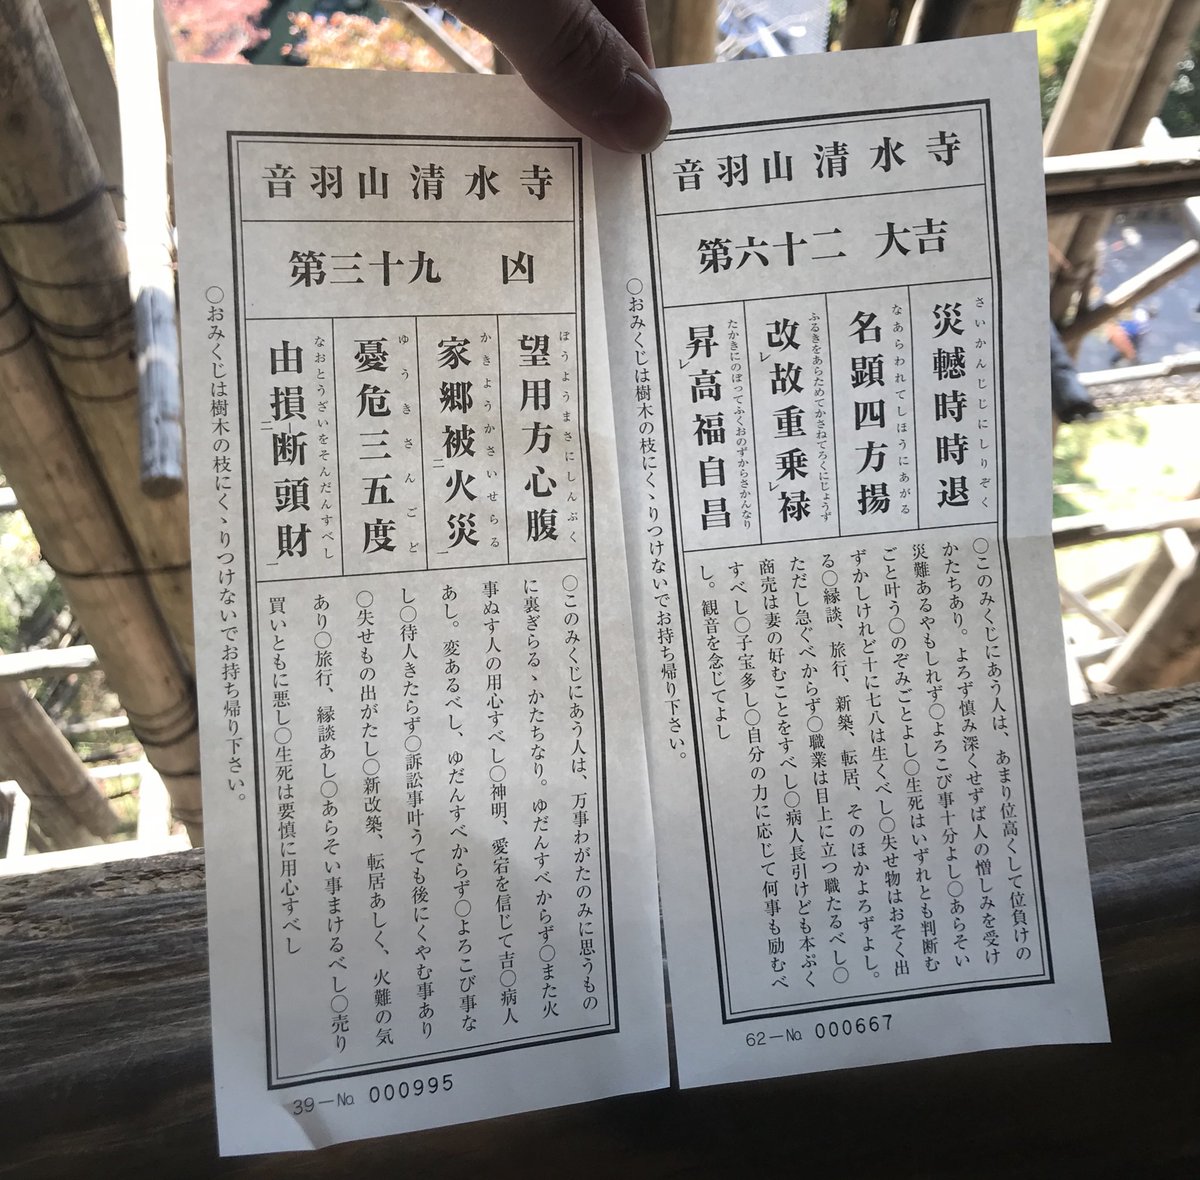 音羽山清水寺
第六十二 大吉
さいかんじじにしりぞく
災轗時時退
なあらわれてしほうにあがる
名顕四方揚
ふるきをあらためてかさねてろくにじょうず
改レ故重乗レ禄
たかきにのぼってふくおのずからさかんなり
昇レ高福自昌
○このみくじにあう人は、あまり位高くして位負けの
かたちあり。よろず慎み深くせずば人の憎しみを受け
災難あるやもしれず○よろこび事十分よし○あらそい
ごと叶う○のぞみごとよし○生死はいずれとも判断む
ずかしけれど十に七八は生くべし○失せ物はおそく出
る○縁談、旅行、新築、転居、そのほかよろずよし。
ただし急ぐべからず○職業は目上に立つ職たるべし○
商売は妻の好むことをすべし○病人長引けども本ぷく
すべし○子宝多し○自分の力に応じて何事も励むべ
し。観音を念じてよし
○おみくじは樹木の枝にくゝりつけないでお持ち帰り下さい。
62－No. 000667
音羽山清水寺
第三十九 凶
ぼうようまさにしんぷく
望用方心腹
かきようかさいせらる
家郷被二火災一
ゆうきさんごど
憂危三五度
なおとうざいをそんだんすべし
由損二断頭財一
○このみくじにあう人は、万事わがたのみに思うもの
に裏ぎらるゝかたちなり。ゆだんすべからず○また火
事ぬす人の用心すべし○神明、愛宕を信じて吉○病人
あし。変あるべし、ゆだんすべからず○よろこび事な
し○待人きたらず○訴訟事叶うても後にくやむ事あり
○失せもの出がたし○新改築、転居あしく、火難の気
あり○旅行、縁談あし○あらそい事まけるべし○売り
買いともに悪し○生死は要慎に用心すべし
○おみくじは樹木の枝にくゝりつけないでお持ち帰り下さい。
39－No. 000995